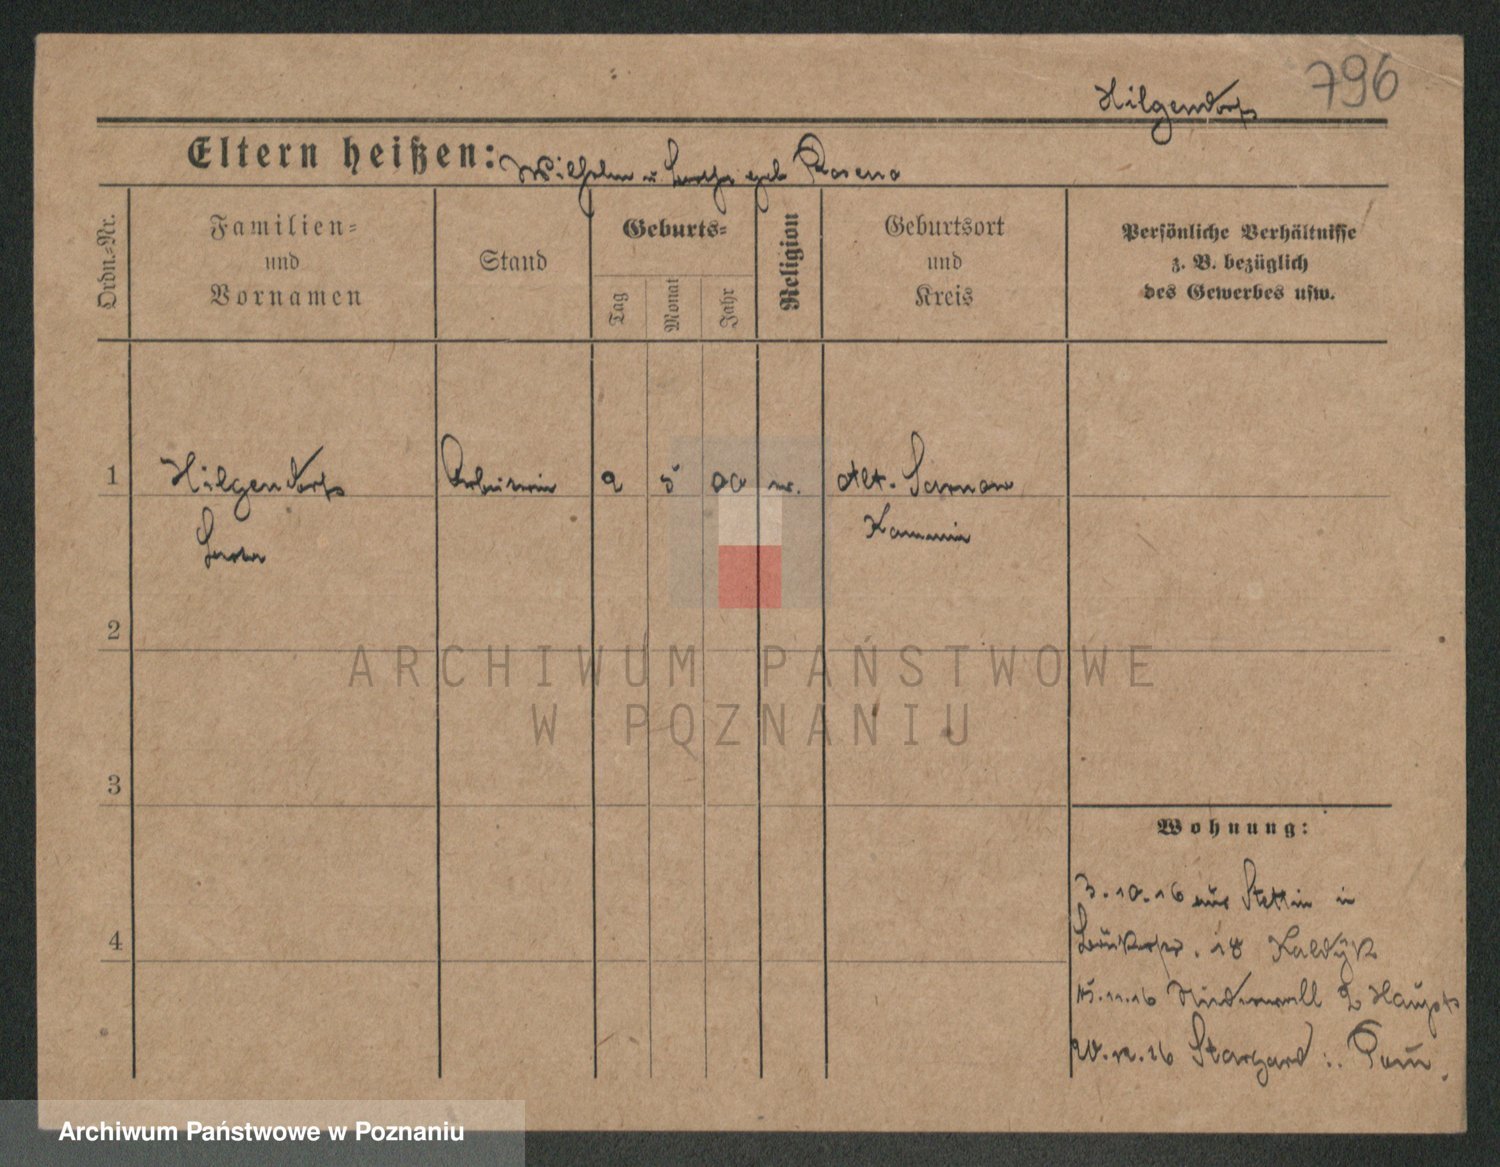 796
Hilgendorf
Eltern heißen: Wilhelm u geb
Ordn.-Nr.
Familien-
und
Vornamen
Stand
Geburts-
Tag
Monat
Jahr
Religion
Geburtsort
und
Kreis
Persönliche Verhältnisse
z. B. bezüglich
des Gewerbes usw.
1 Hilgendorf Arbeiterin 2 5 00 ev. Alt. Sarnow
Kammin
2
ARCHIWUM PAŃSTWOWE
W POZNANIU
3
Wohnung:
3.10.16 aus Stettin in
18 Kaldyk
4
15.11.16 Niederwall 2 Haupt
20.12.16 Stargard i. Pom.
Archiwum Państwowe w Poznaniu